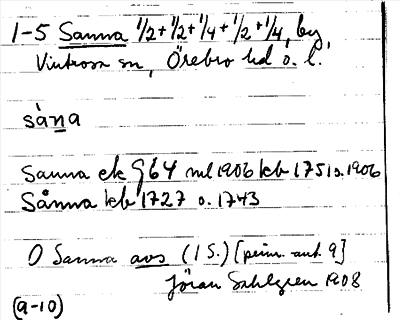 1-5 Sanna 1/2+1/2+1/4+1/2+1/4, by,
Vintrosa sn, Örebro hd o. l.
sàna
Sanna ek G64 ml 1906 kb 1751 o. 1906
Sånna kb 1727 o. 1743
O Sanna avs (1 S.) [prim. ant. 9]
Jöran Sahlgren 1908
(9-10)